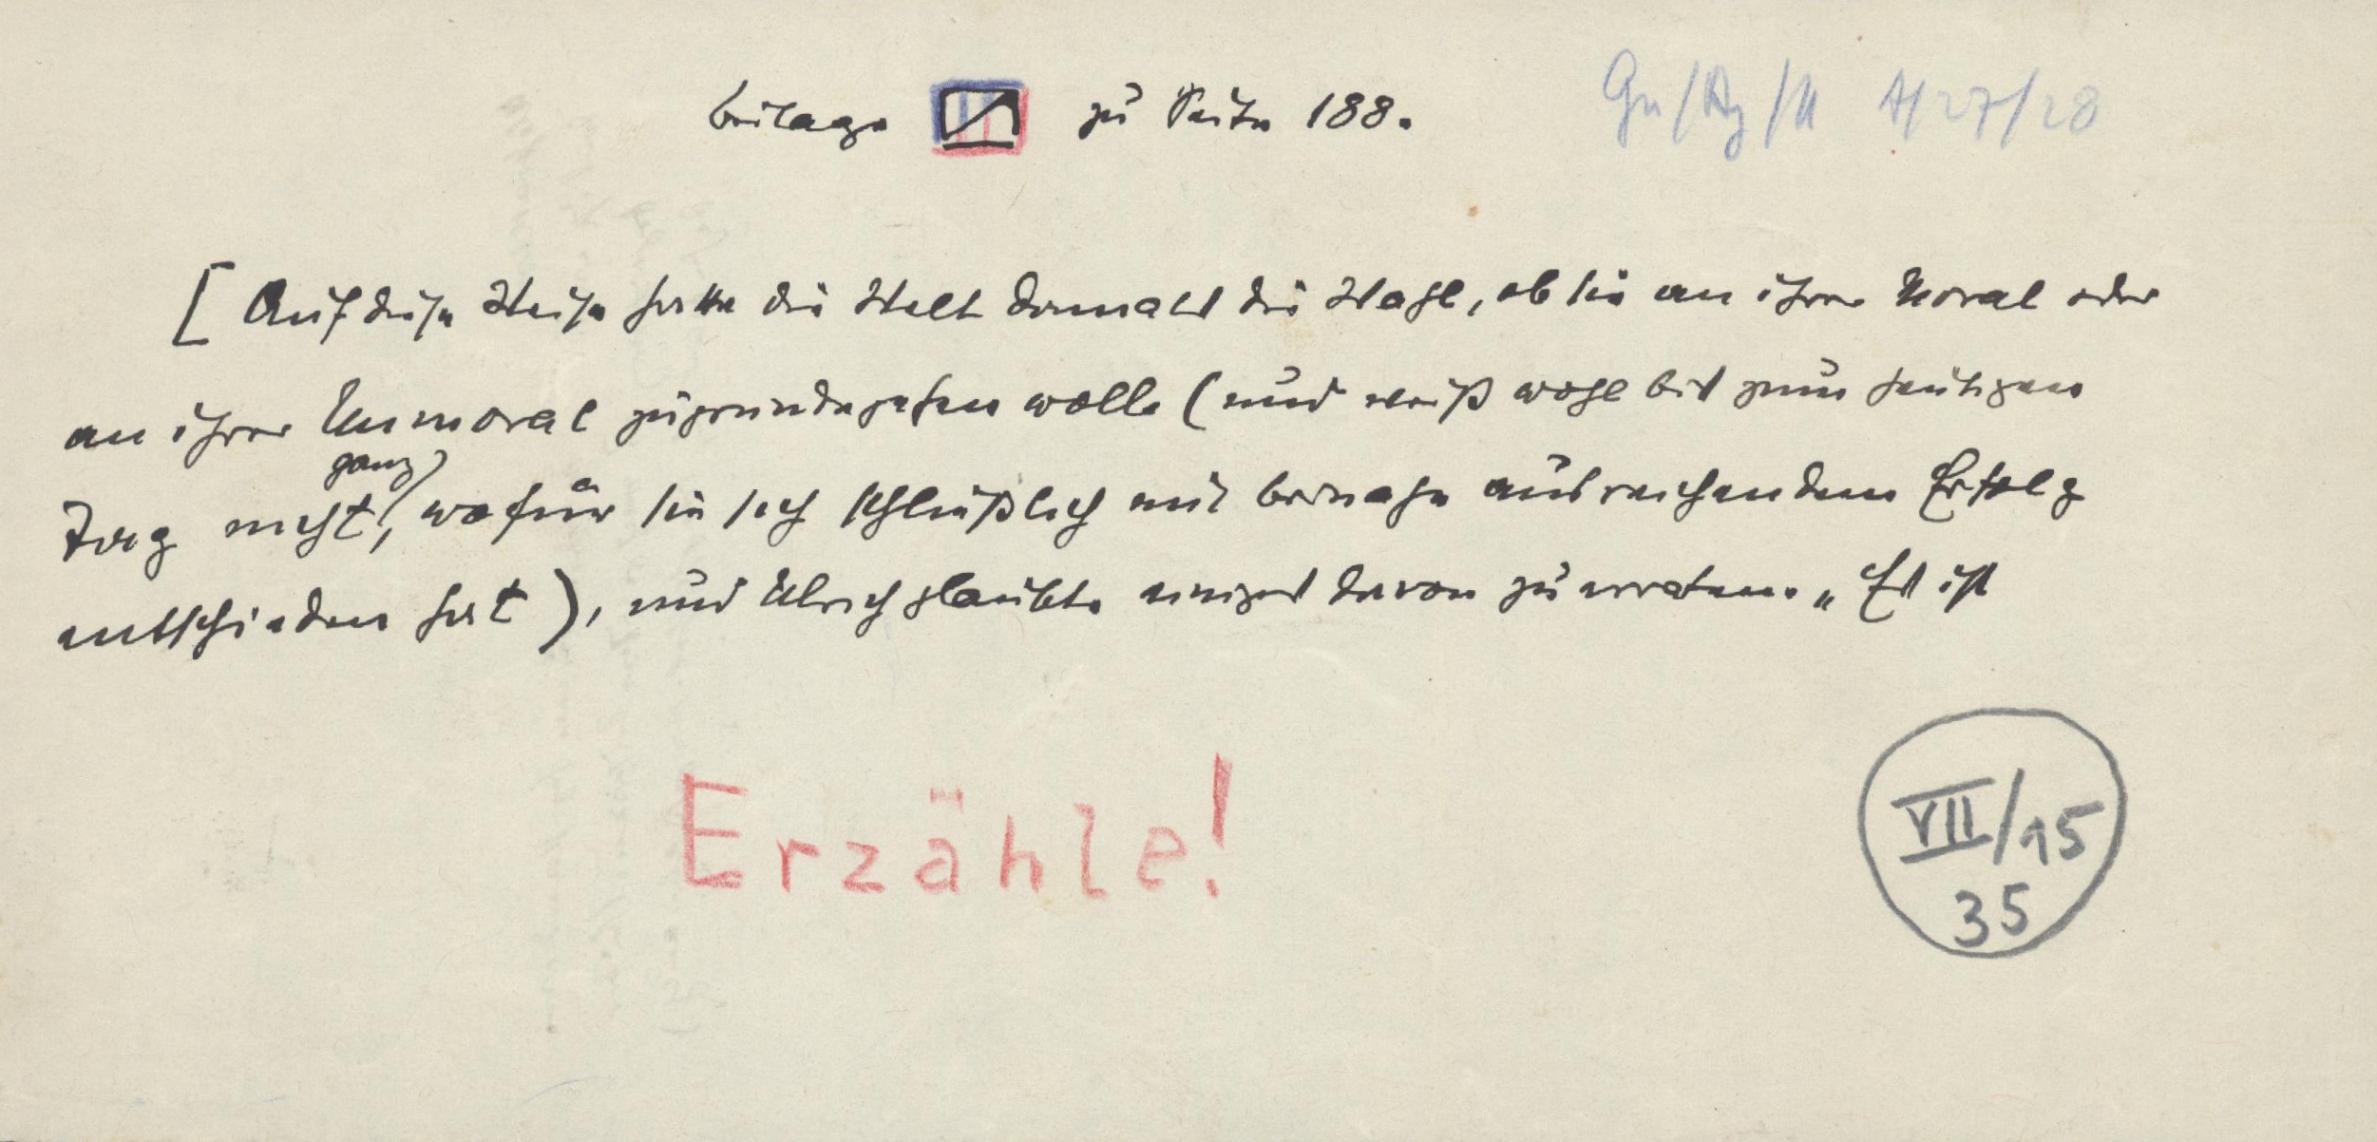 Beilage zu Seite 188.
[ Auf diese Weise hatte die Welt damals die Wahl, ob sie an ihrer Moral oder
an ihrer Unmoral zugrundegehen wolle (und weiß wohl bis zum heutigen
ganz
Tag nicht, wofür sie sich schließlich mit beinahe ausreichendem Erfolg
entschieden hat), und Ulrich glaubte einiges davon zu erraten. „Es ist
Erzähle!
VII/15
35